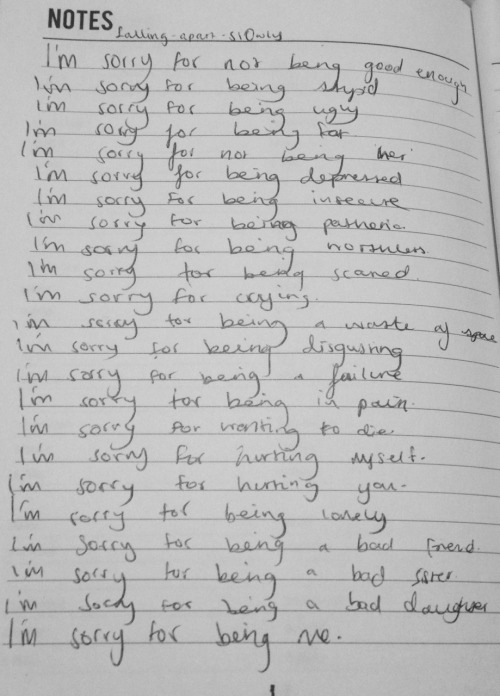 NOTES
falling-apart-slowly
I'm sorry for not being good enough
I'm sorry for being stupid
I'm sorry for being ugly
I'm sorry for being fat
I'm sorry for not being her
I'm sorry for being depressed
I'm sorry for being insecure
I'm sorry for being pathetic.
I'm sorry for being worthless.
I'm sorry for being scared.
I'm sorry for crying.
I'm sorry for being a waste of space
I'm sorry for being disgusting
I'm sorry for being a failure
I'm sorry for being in pain.
I'm sorry for wanting to die.
I'm sorry for hurting myself.
I'm sorry for hurting you.
I'm sorry for being lonely
I'm sorry for being a bad friend.
I'm sorry for being a bad sister.
I'm sorry for being a bad daughter
I'm sorry for being me.